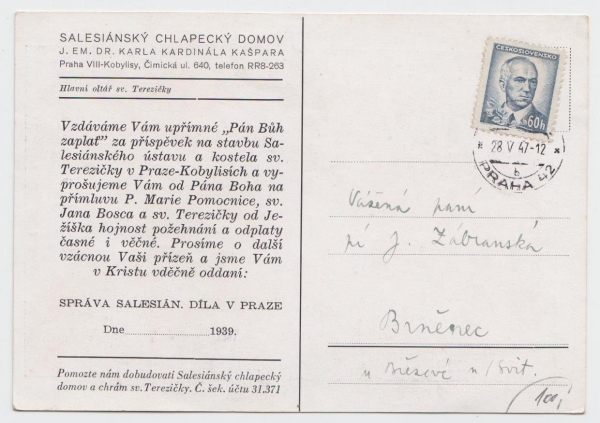 SALESIÁNSKÝ CHLAPECKÝ DOMOV
J. EM. DR. KARLA KARDINÁLA KAŠPARA
Praha VIII-Kobylisy, Čimická ul. 640, telefon RR8-263
Hlavní oltář sv. Terezičky
Vzdáváme Vám upřímné „Pán Bůh
zaplať" za příspěvek na stavbu Sa-
lesiánského ústavu a kostela sv.
Terezičky v Praze-Kobylisích a vy-
prošujeme Vám od Pána Boha na
přímluvu P. Marie Pomocnice, sv.
Jana Bosca a sv. Terezičky od Je-
žíška hojnost požehnání a odplaty
časné i věčné. Prosíme o další
vzácnou Vaši přízeň a jsme Vám
v Kristu vděčně oddaní:
SPRÁVA SALESIÁN. DÍLA V PRAZE
Dne 1939.
Pomozte nám dobudovati Salesiánský chlapecký
domov a chrám sv. Terezičky. Č. šek. účtu 31.371
ČESKOSLOVENSKO
60h
* 28 V 47-12 *
b
PRAHA 42
Vážená paní
pí J. Zábranská
Brněnec
u Březové n/Svit.